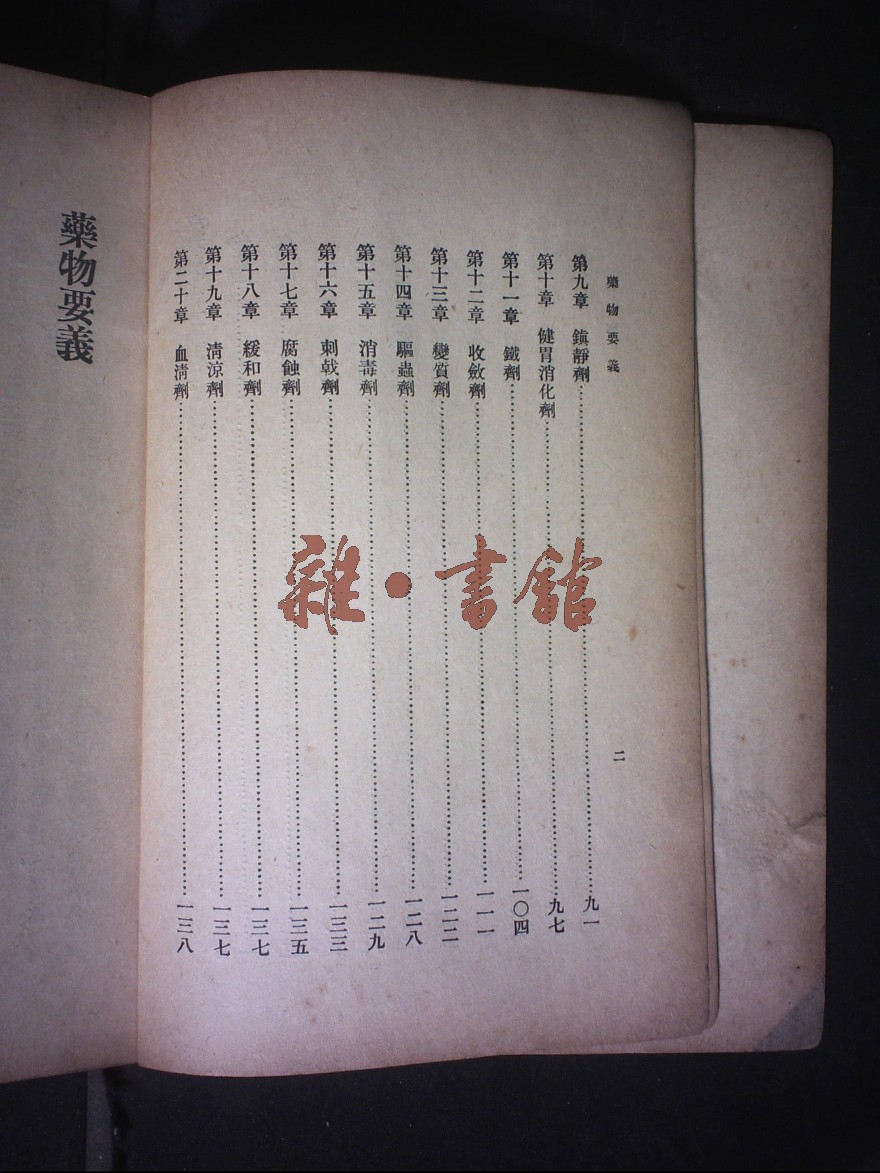 藥物要義
二
第九章 鎮靜劑……九一
第十章 健胃消化劑……九七
第十一章 鐵劑……一〇四
第十二章 收斂劑……一一一
第十三章 變質劑……一二二
第十四章 驅蟲劑……一二八
第十五章 消毒劑……一二九
第十六章 刺戟劑……一三三
第十七章 腐蝕劑……一三五
第十八章 緩和劑……一三七
第十九章 清涼劑……一三七
第二十章 血清劑……一三八
藥物要義
雜·書館